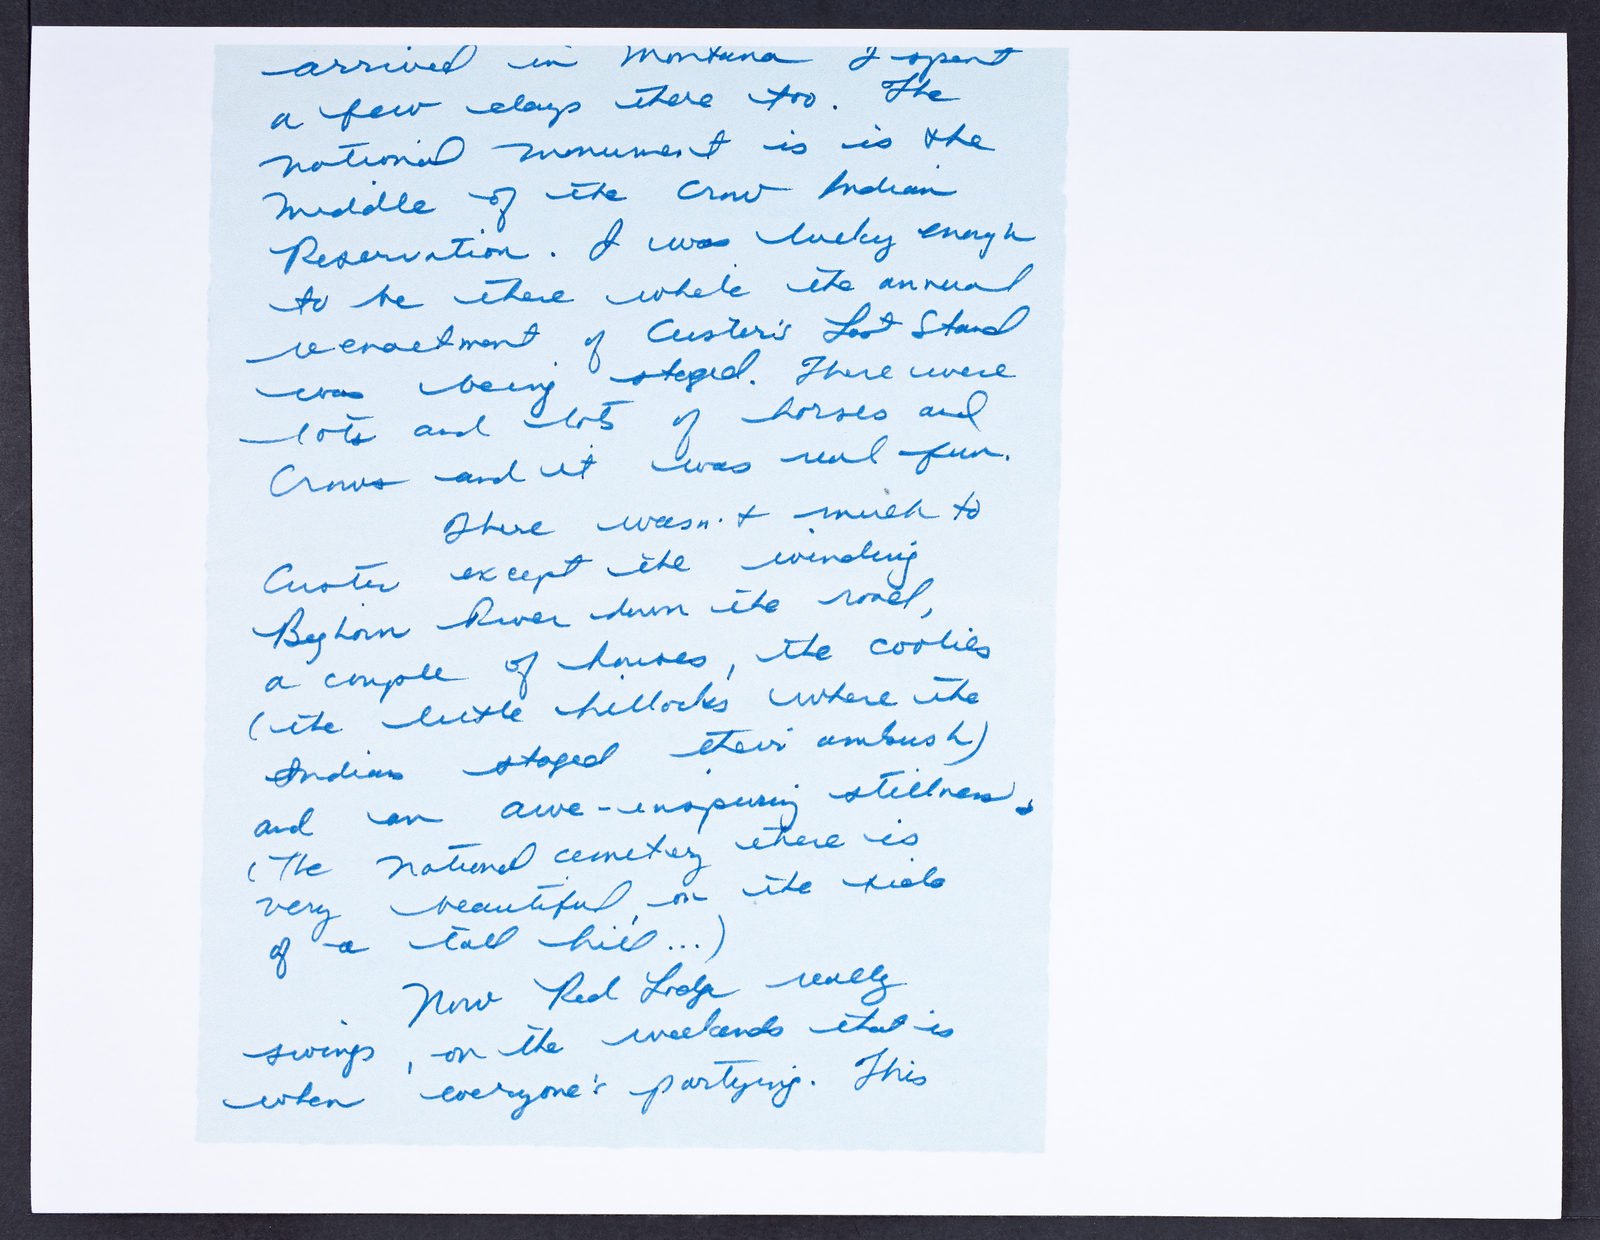 arrived in Montana I spent
a few days there too. The
national monument is is the
middle of the Crow Indian
Reservation. I was lucky enough
to be there while the annual
reenactment of Custer's Last Stand
was being staged. There were
lots and lots of horses and
Crows and it was real fun.
There wasn't much to
Custer except the winding
Bighorn River down the road,
a couple of houses, the coolies
(the little hillocks where the
Indians staged their ambush)
and an awe-inspiring stillness.
(The national cemetery there is
very beautiful, on the side
of a tall hill...)
Now Red Lodge really
swings, on the weekends that is
when everyone's partying. This